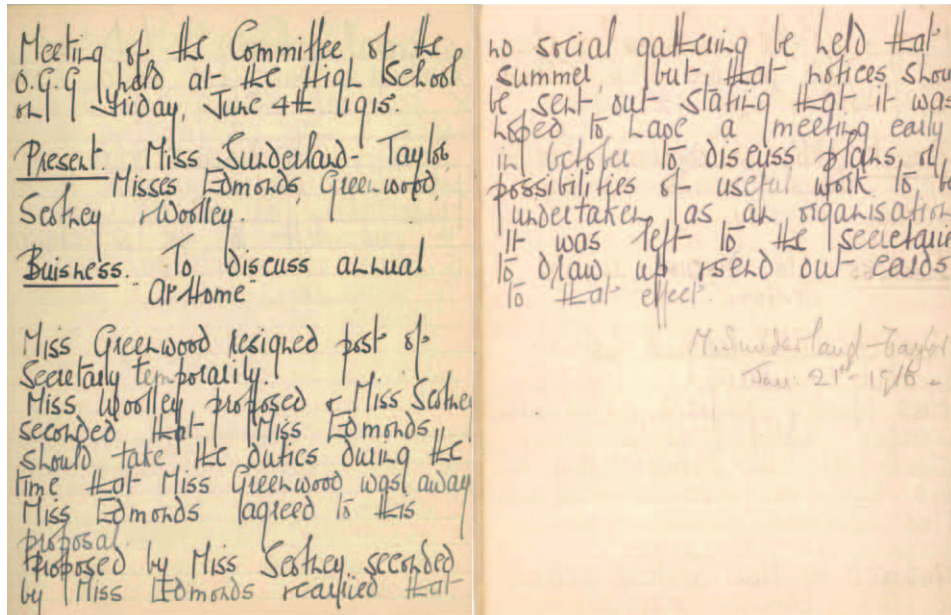 Meeting of the Committee of the
O.G.G held at the High School
on Friday, June 4th 1915.
Present. Miss Sunderland-Taylor,
Misses Edmonds, Greenwood,
Scotney & Woolley.
Buisness. To discuss annual
"At Home"
Miss Greenwood resigned post of
Secretary temporarily.
Miss Woolley proposed & Miss Scotney
seconded that Miss Edmonds
should take the duties during the
time that Miss Greenwood was away
Miss Edmonds agreed to this
proposal.
Proposed by Miss Scotney seconded
by Miss Edmonds & carried that
no social gathering be held that
summer, but that notices shou
be sent out stating that it was
hoped to have a meeting early
in October to discuss plans, or
possibilities of useful work to be
undertaken as an organisation
It was left to the secretarie
to draw up & send out cards
to that effect.
M. Sunderland-Taylor
Jan: 21st 1916